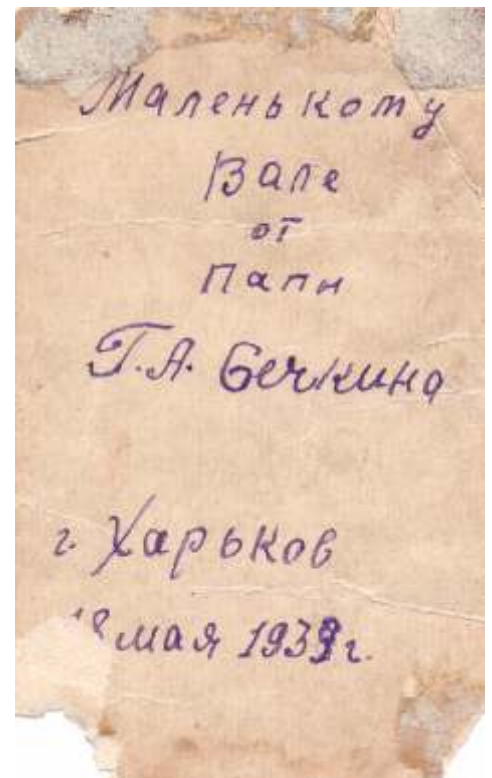 Маленькому
Вале
от
Папы
Г.А. Бечкина
г. Харьков
18 мая 1939 г.